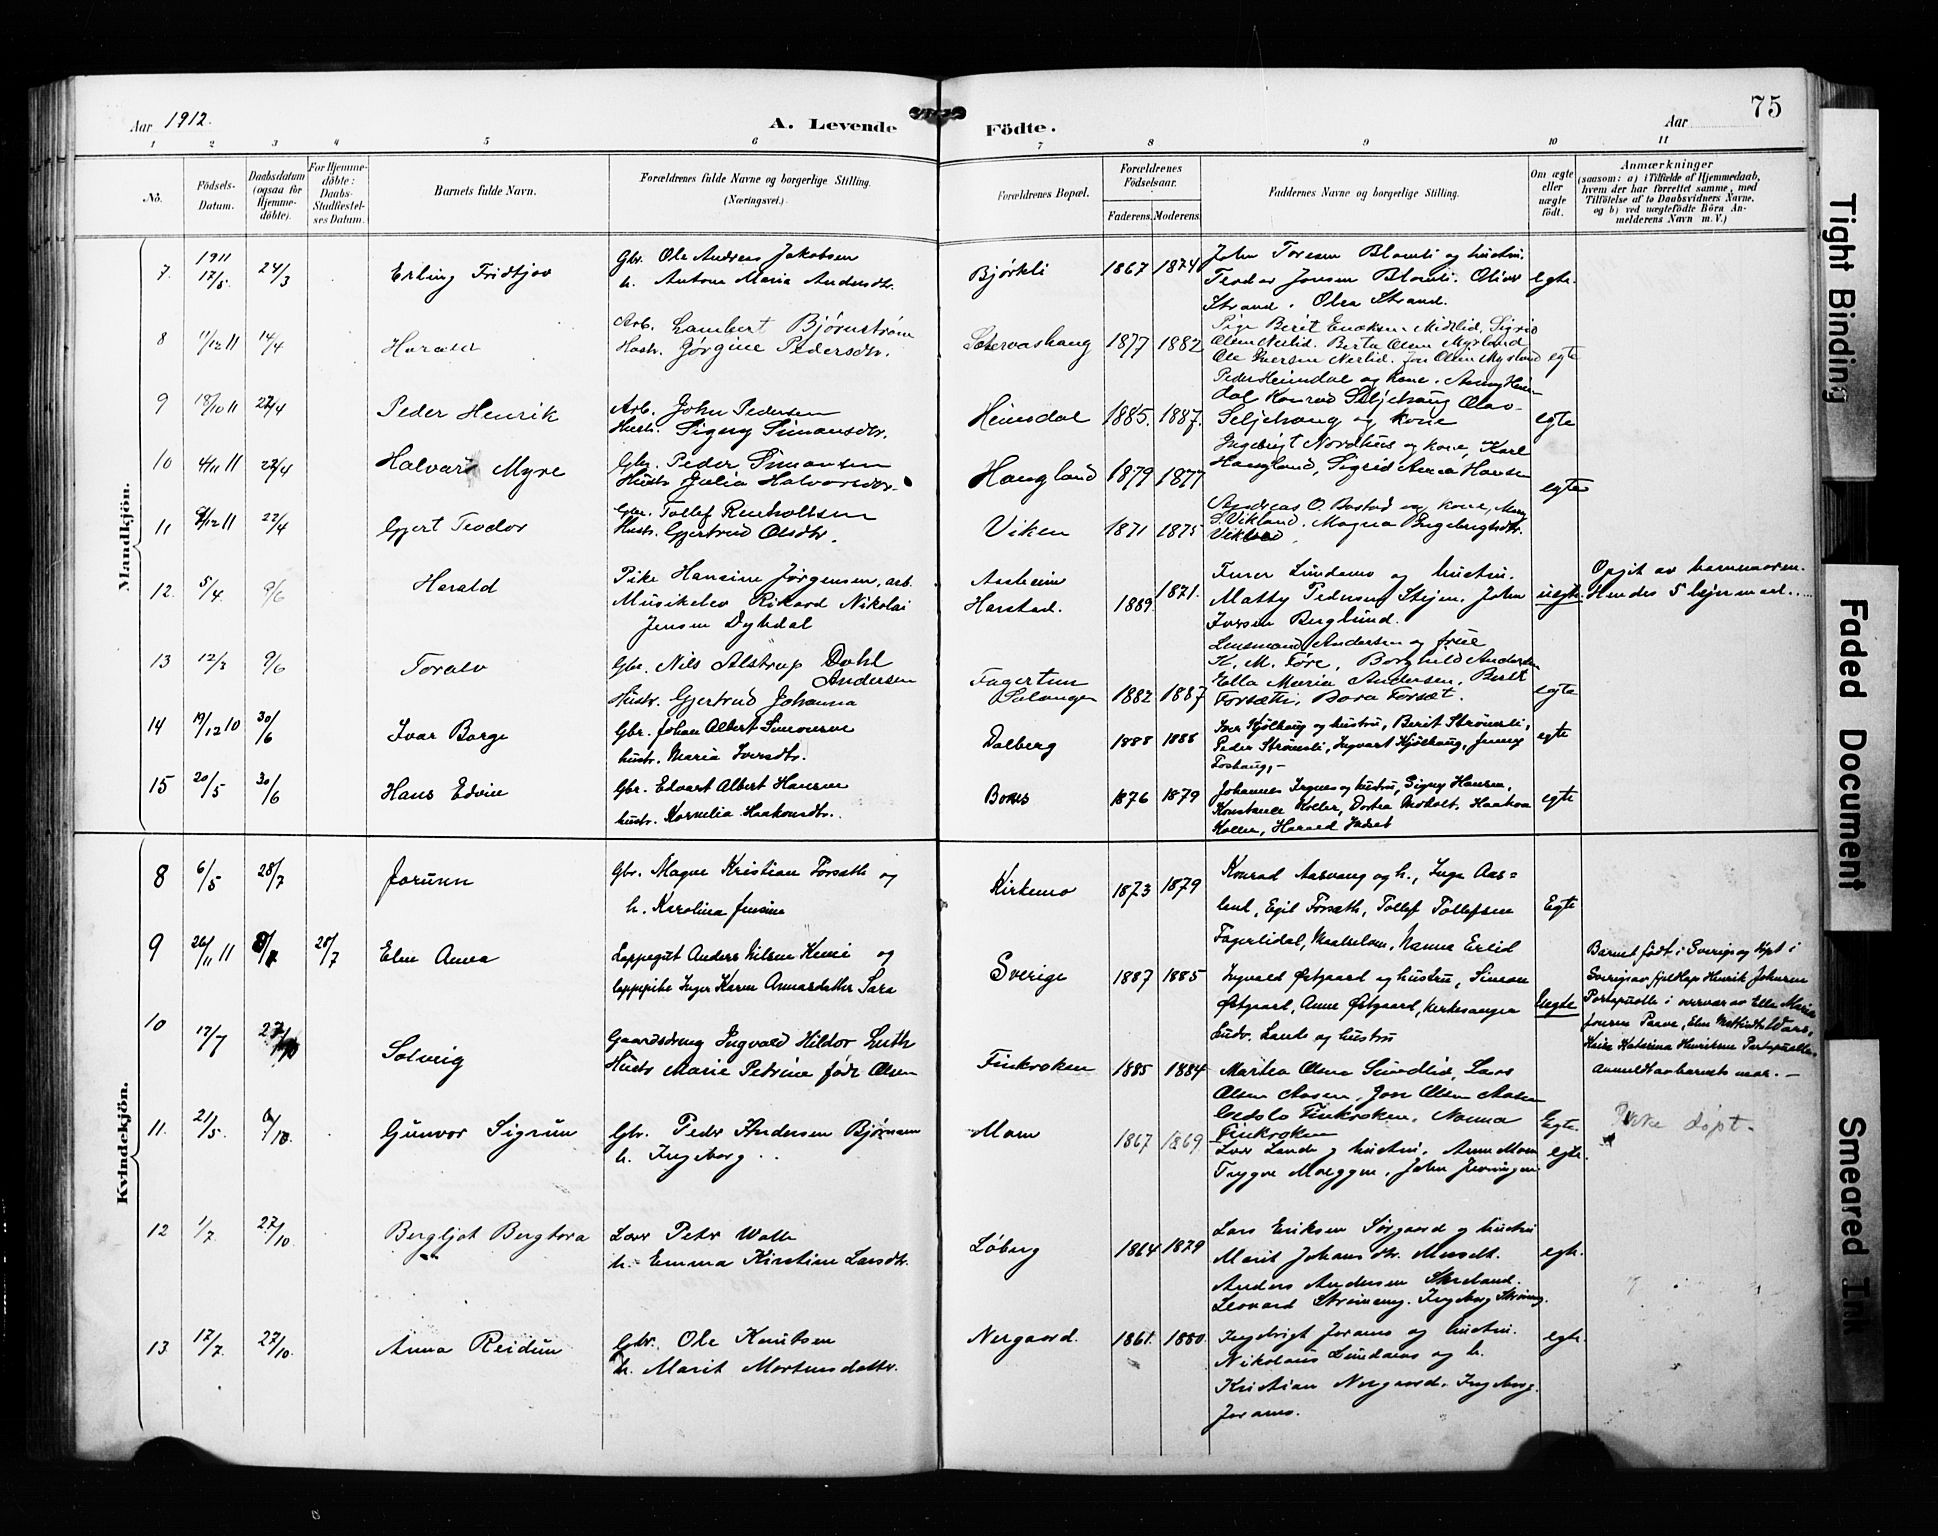 Aar 1912.
A. Levende Födte.
Aar
75
1 2 3 4 5 6 7 8 9 10 11
No. Födsels-Datum. Daabsdatum (ogsaa for Hjemme-döbte). For Hjemme-döbte: Daabs-Stadfæstel-ses Datum. Barnets fulde Navn. Forældrenes fulde Navne og borgerlige Stilling. (Næringsvei.) Forældrenes Bopæl. Forældrenes Födselsaar. Faderens. Moderens. Faddernes Navne og borgerlige Stilling. Om ægte eller uægte födt. Anmærkninger (saasom: a) i Tilfælde af Hjemmedaab, hvem der har forrettet samme, med Tilföielse af to Daabsvidners Navne, og b) ved uægtefödte Börn An-melderens Navn m. V.)
Mandkjön.
7. 1911 17/5. 24/3 Erling Fridtjov Gbr. Ole Andreas Jakobsen h. Antona Maria Andersdtr. Bjørkli 1867 1874 John Toresen Blomli og hustru. Teodor Jensen Blomli. Oliver Strand. Olea Strand. egte.
8 11/12 11 14/4 Harald Arb. Lambert Bjørnstrøm Hustr. Jørgine Pedersdtr. 1877 1882 Pige Berit Midtlid, Sigrid Olsen Nerlid. Berta Olsen Myrland Ole Iversen Nerlid. Jon Olsen Myrland egte
9 18/10 11 22/4 Peder Henrik Arb. John Pedersen Hustr. Signy Simonsdtr. Heimdal 1885. 1887. Peder Heimdal og kone. Anny Heimdal Konrad Seljehaug Olav Seljehaug og kone egte
10 4/11 11 22/4 Halvard Myre Gbr. Peder Simonsen Hustr. Julia Halvorsdtr. Haugland 1879 1877 Ingebrigt Nordhus og kone, Karl Haugland, Sigrid Anna Hansen egte
11 22/4 Gjert Teodor Gbr. Tollef Renholtsen Hustr. Gjertrud Olsdtr. Viken 1871 1875 Andreas O. Bostad og kone, S. Vikland. Magna Ingebrigtsdtr. Vikland
12. 5/4. 9/6 Harald Pike Hansine Jørgensen, arb. Musikelev Rikard Nikolai Jensen Dyhdal Aasheim Harstad. 1889. 1871. Furer Lundamo og hustru. Matty Pedersen Steijen. John Iversen Berglund. uegte. Opgit av barnemoren. Hendes 5
13 12/3 9/6 Toralv Gbr. Nils Alstrup Dahl Andersen Hustr. Gjertrud Johanna Fagertun Salangen 1882 1887 Lensmand Andersen og frue K. M. Føre, Borghild Andersen Ella Maria Andersen, Berit Forsæth, Dora Forsæt. egte
14 19/12 10 30/6 Ivar Borge Gbr. Johan Albert hustr. Maria Iversdtr. Dalberg 1888 1888 Iver Kjølhaug og hustru, Berit Strømsli, Peder Strømsli, Ingvart Kjølhaug, Jenny Foshaug,- egte
15 20/5 30/6 Hans Edvin Gbr. Edvart Albert Hansen hustr. Kornelia Haakonsdtr. 1876 1879 Johannes og hustru, Signy Hansen, Konstanse Koller, Dortea Moholt, Haakon Koller, Harald egte
Kvindekjön.
8 6/5 28/7 Jorunn Gbr. Magne Kristian Forsæth og h. Karolina Jensine Kirkemo 1873 1879 Konrad Aasvang og h., Inga Aas=lund, Egil Forsæth, Tollef Tollefsen Fagerlidal, Maalselven, Nanna Erlid Egte
9 26/11 11 28/7 Elen Anna Lappegut Anders Nilsen Kemi og lappepike Inger Karen Annasdatter Sara Sverige 1887 1885 Ingvald Østgaard og hustru, Simon Østgaard, Anne Østgaard, Kirkesanger Ludv. Lande og hustru Uegte Barnet født i Sverige og døpt i Sverige av fjeldlap Henrik Johnsen i overvær av Ella Maria Anmeldt av barnets mor. -
10 17/7 Solveig Gaardsdreng Ingvald Hildor Luth Hustr Marie Petrine født Olsen Finkroken 1885 1884 Martha Olsen Sundlid, Lars Olsen Aasen, Jon Olsen Aasen Finkroken, Nanna Finkroken Egte.
11. 21/5. Gunvor Sigrun Gbr. Peder Andersen Bjørnsen h. Ingeborg .. Moen 1867 1869 Lande og hustru, Anne Moen Trygve egte. Ikke døpt.
12 1/7. 27/10. Bergljot Bergtora Peter h. Emma Kirstine Larsdtr. Løberg 1864 1879 Lars Eriksen Sørgaard og hustru Marit Johansdtr. Anders Andersen Leonard Strømeng. Ingeborg Strømeng. egte.
13 17/7. 27/10. Anna Reidun Gbr. Ole Knutsen h. Marit Mortensdattr. Nergaard. 1861. 1880. Ingebrigt Joramo og hustru. Nikolaus Lundamo og h. Kristian Nergaard. Ingeborg Joramo. egte.
Tight Binding
Faded Document
Smeared Ink